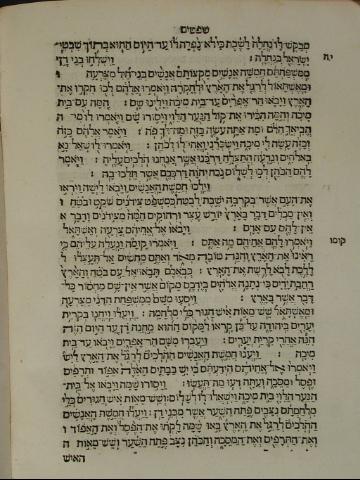 שפטים
מבקש לו נחלה לשבת כי לא נפלה לו עד היום ההוא בתוך שבטי
יח ישראל בנחלה : וישלחו בני דן
ממשפחתם חמשה אנשים מקצותם אנשים בני חיל מצרעה
ומאשתאול לרגל את הארץ ולחקרה ויאמרו אלהם לכו חקרו את
הארץ ויבאו הר אפרים עד בית מיכה וילינו שם : המה עם בית
מיכה והמה הכירו את קול הנער הלוי ויסורו שם ויאמרו לו מי
הביאך הלם ומה אתה עשה בזה ומה לך פה : ויאמר אלהם כזה
וכזה עשה לי מיכה וישכרני ואהי לו לכהן : ויאמרו לו שאל נא
באלהים ונדעה התצליח דרכנו אשר אנחנו הלכים עליה : ויאמר
להם הכהן לכו לשלום נכח יהוה דרככם אשר תלכו בה :
וילכו חמשת האנשים ויבאו לישה ויראו
את העם אשר בקרבה יושבת לבטח כמשפט צידנים שקט ובטח ו
ואין מכלים דבר בארץ יורש עצר ורחוקים המה מצידנים ודבר א
אין להם עם אדם : ויבאו אל אחיהם צרעה ואשתאל
ויאמרו להם אחיהם מה אתם : ויאמרו קומה ונעלה עליהם כי
ראינו את הארץ והנה טובה מאד ואתם מחשים אל תעצלו ל
ללכת לבא לרשת את הארץ : כבאכם תבאו אל עם בטח והארץ
רחבת ידים כי נתנה אלהים בידכם מקום אשר אין שם מחסור כל
דבר אשר בארץ : ויסעו משם ממשפחת הדני מצרעה
ומאשתאל שש מאות איש חגור כלי מלחמה : ויעלו ויחנו בקרית
יערים ביהודה על כן קראו למקום ההוא מחנה דן עד היום הזה
הנה אחרי קרית יערים : ויעברו משם הר אפרים ויבאו עד בית
מיכה : ויענו חמשת האנשים ההלכים לרגל את הארץ ליש
ויאמרו אל אחיהם הידעתם כי יש בבתים האלה אפוד ותרפים
ופסל ומסכה ועתה דעו מה תעשו : ויסורו שמה ויבאו אל בית
הנער הלוי בית מיכה וישאלו לו לשלום : ושש מאות איש חגורים כלי
מלחמתם נצבים פתח השער אשר מבני דן : ויעלו חמשת האנשים
ההלכים לרגל את הארץ באו שמה לקחו את הפסל ואת האפוד ו
ואת התרפים ואת המסכה והכהן נצב פתח השער ושש מאות ה
האיש